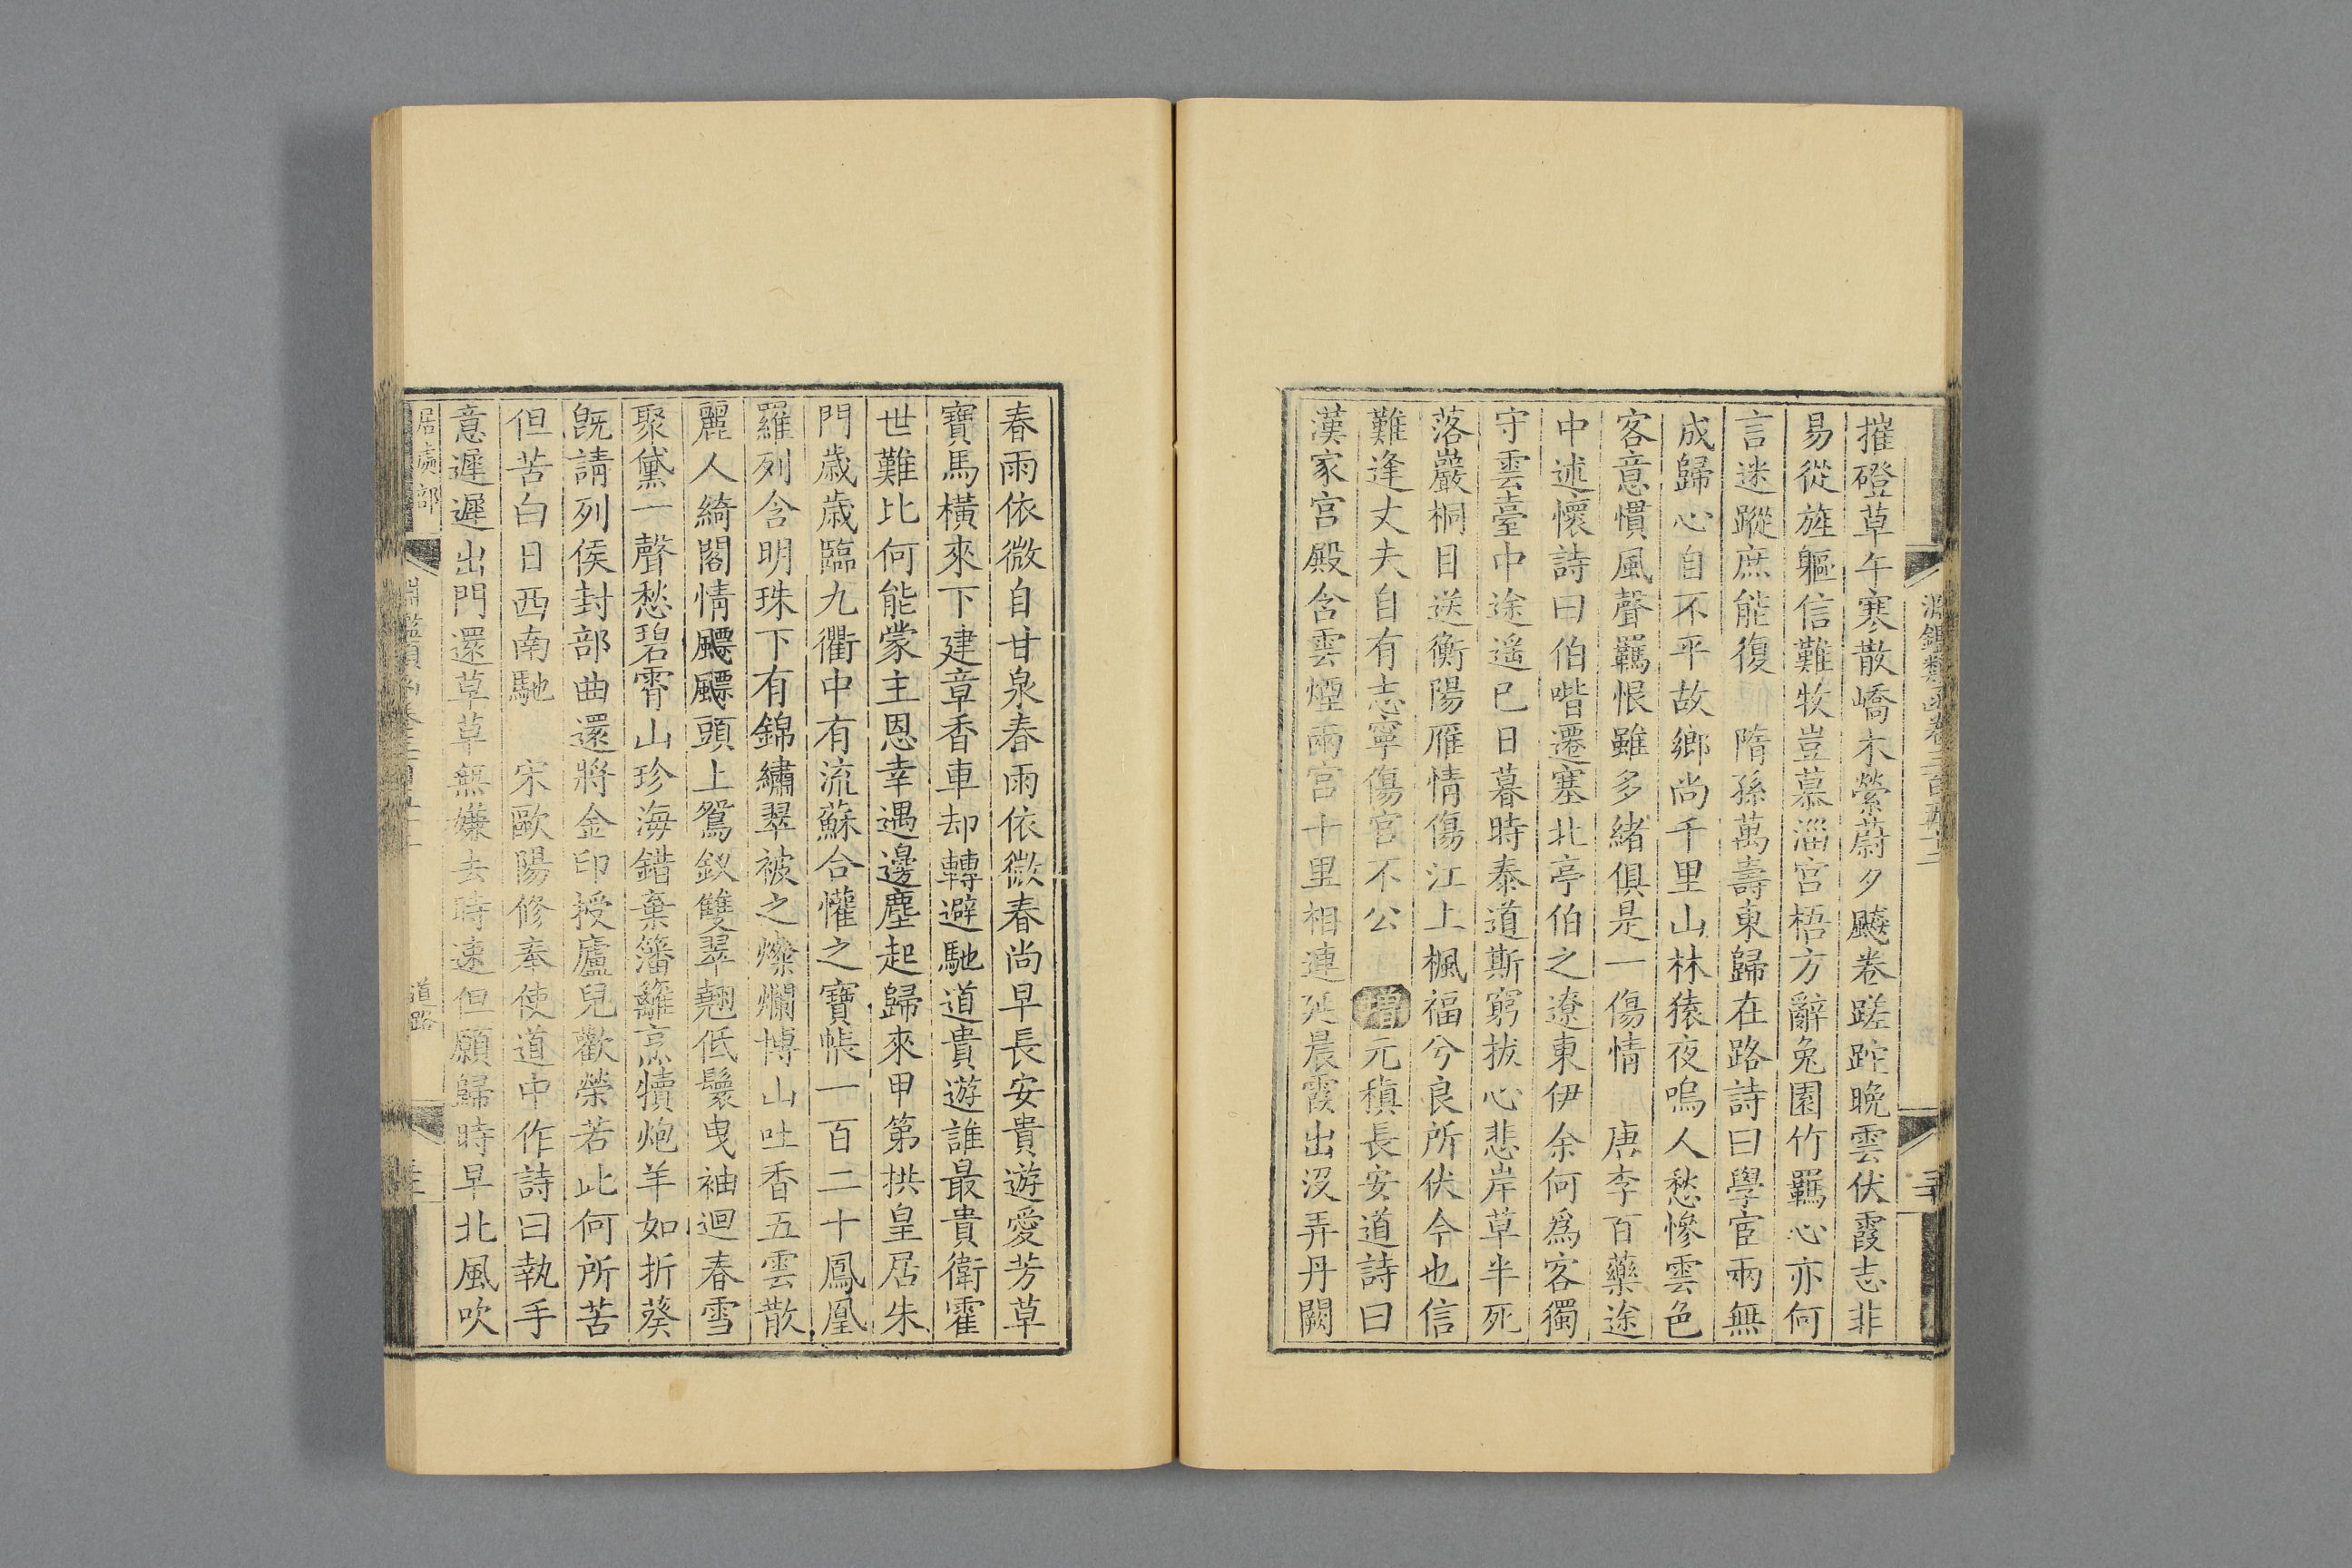 淵鑑類函卷三百五十二
三十
摧磴草午寒散嶠木縈蔚夕飈卷蹉跎晩雲伏霞志非
易從旌軀信難牧豈慕淄宫梧方辭兔園竹羈心亦何
言迷蹤庶能復 隋孫萬壽東歸在路詩曰學宦兩無
成歸心自不平故鄉尚千里山林猿夜鳴人愁慘雲色
客意慣風聲羈恨雖多緒俱是一傷情 唐李百藥途
中述懷詩曰伯喈遷塞北亭伯之遼東伊余何爲客獨
守雲臺中途遥已日暮時泰道斯窮拔心悲岸草半死
落巖桐目送衡陽雁情傷江上楓福兮良所伏今也信
難逢丈夫自有志寧傷官不公 增元稹長安道詩曰
漢家宫殿含雲煙兩宫十里相連延晨霞出沒弄丹闕
春雨依微自甘泉春雨依微春尚早長安貴遊愛芳草
寶馬橫來下建章香車却轉避馳道貴遊誰最貴衛霍
世難比何能蒙主恩幸遇邊塵起歸來甲第拱皇居朱
門歳歳臨九衢中有流蘇合懽之寶帳一百二十鳳凰
羅列含明珠下有錦繡翠被之燦爛博山吐香五雲散
麗人綺閣情飄颻頭上鴛釵雙翠翹低鬟曳袖迴春雪
聚黛一聲愁碧霄山珍海錯棄籓籬烹犢炰羊如折葵
旣請列侯封部曲還將金印授廬兒歡榮若此何所苦
但苦白日西南馳 宋歐陽修奉使道中作詩曰執手
意遲遲出門還草草無嫌去時速但願歸時早北風吹
居處部
道路